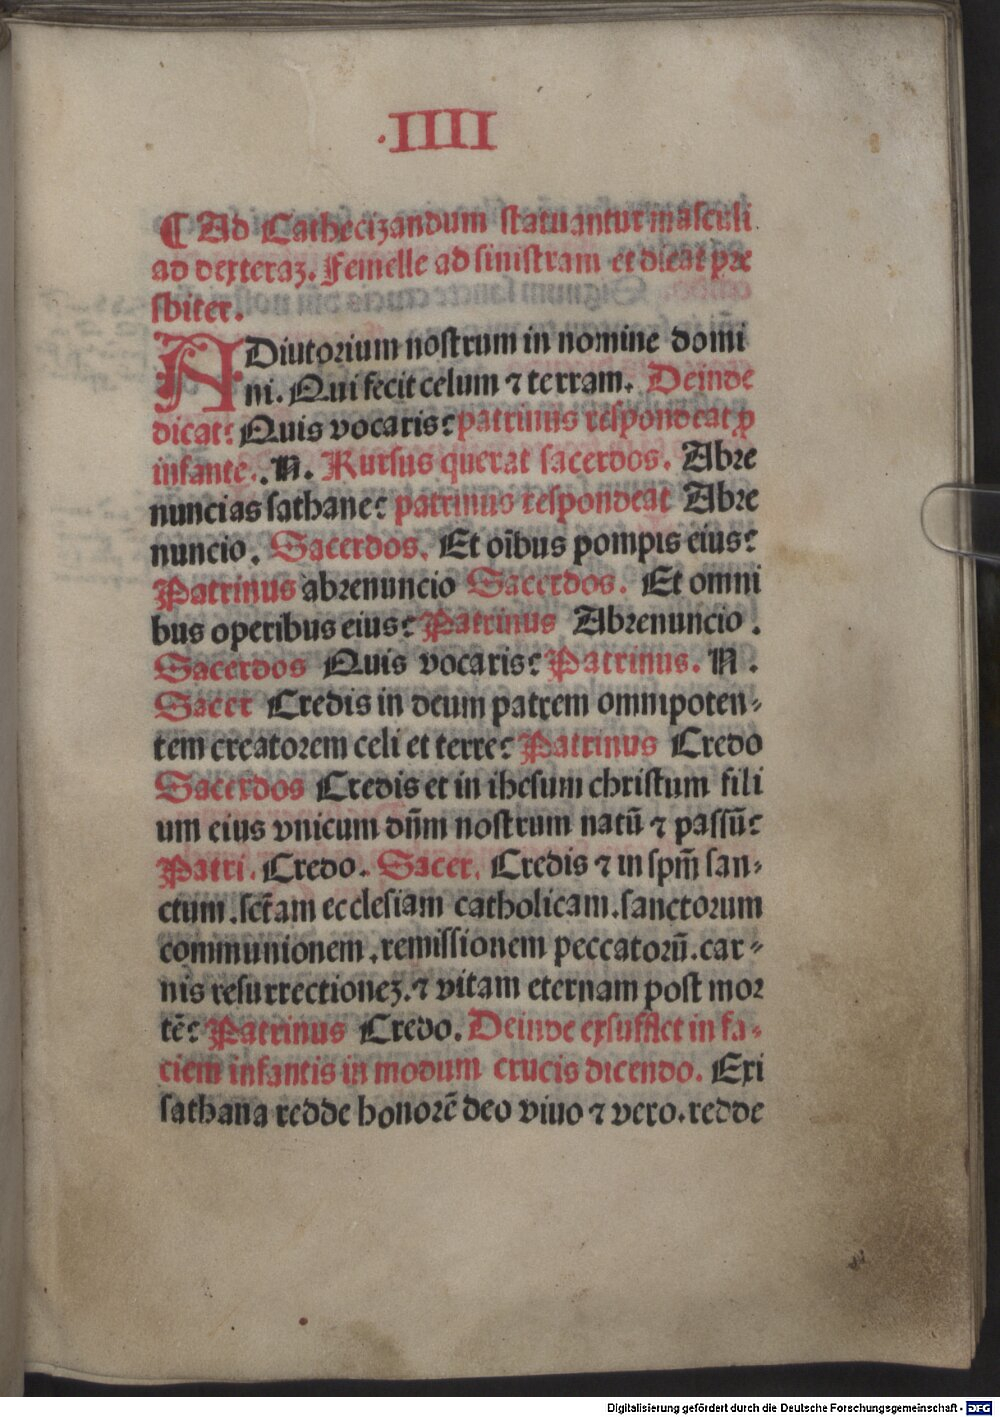 ·IIII
¶ Ad Cathecizandum statuantur masculi
ad dexteraꝫ. Femelle ad sinistram et dicat pre
sbiter.
ADiutorium nostrum in nomine domi
ni. Qui fecit celum ⁊ terram. Deinde
dicat: Quis vocaris? patrinus respondeat ꝓ
infante. .N. Rursus querat sacerdos. Abre
nuncias sathane? patrinus respondeat Abre
nuncio. Sacerdos. Et oībus pompis eius?
Patrinus abrenuncio Sacerdos. Et omni
bus operibus eius? Patrinus Abrenuncio.
Sacerdos Quis vocaris? Patrinus. N.
Sacer Credis in deum patrem omnipoten-
tem creatorem celi et terre? Patrinus Credo
Sacerdos Credis et in ihesum christum fili
um eius vnicum dn̄m nostrum natū ⁊ passū?
Patri. Credo. Sacer. Credis ⁊ in spm̄ san-
ctum. sct̄am ecclesiam catholicam. sanctorum
communionem, remissionem peccatorū. car-
nis resurrectioneꝫ. ⁊ vitam eternam post mor
tē? Patrinus Credo. Deinde exsufflet in fa-
ciem infantis in modum crucis dicendo. Exi
sathana redde honorē deo viuo ⁊ vero. redde
Digitalisierung gefördert durch die Deutsche Forschungsgemeinschaft - DFG